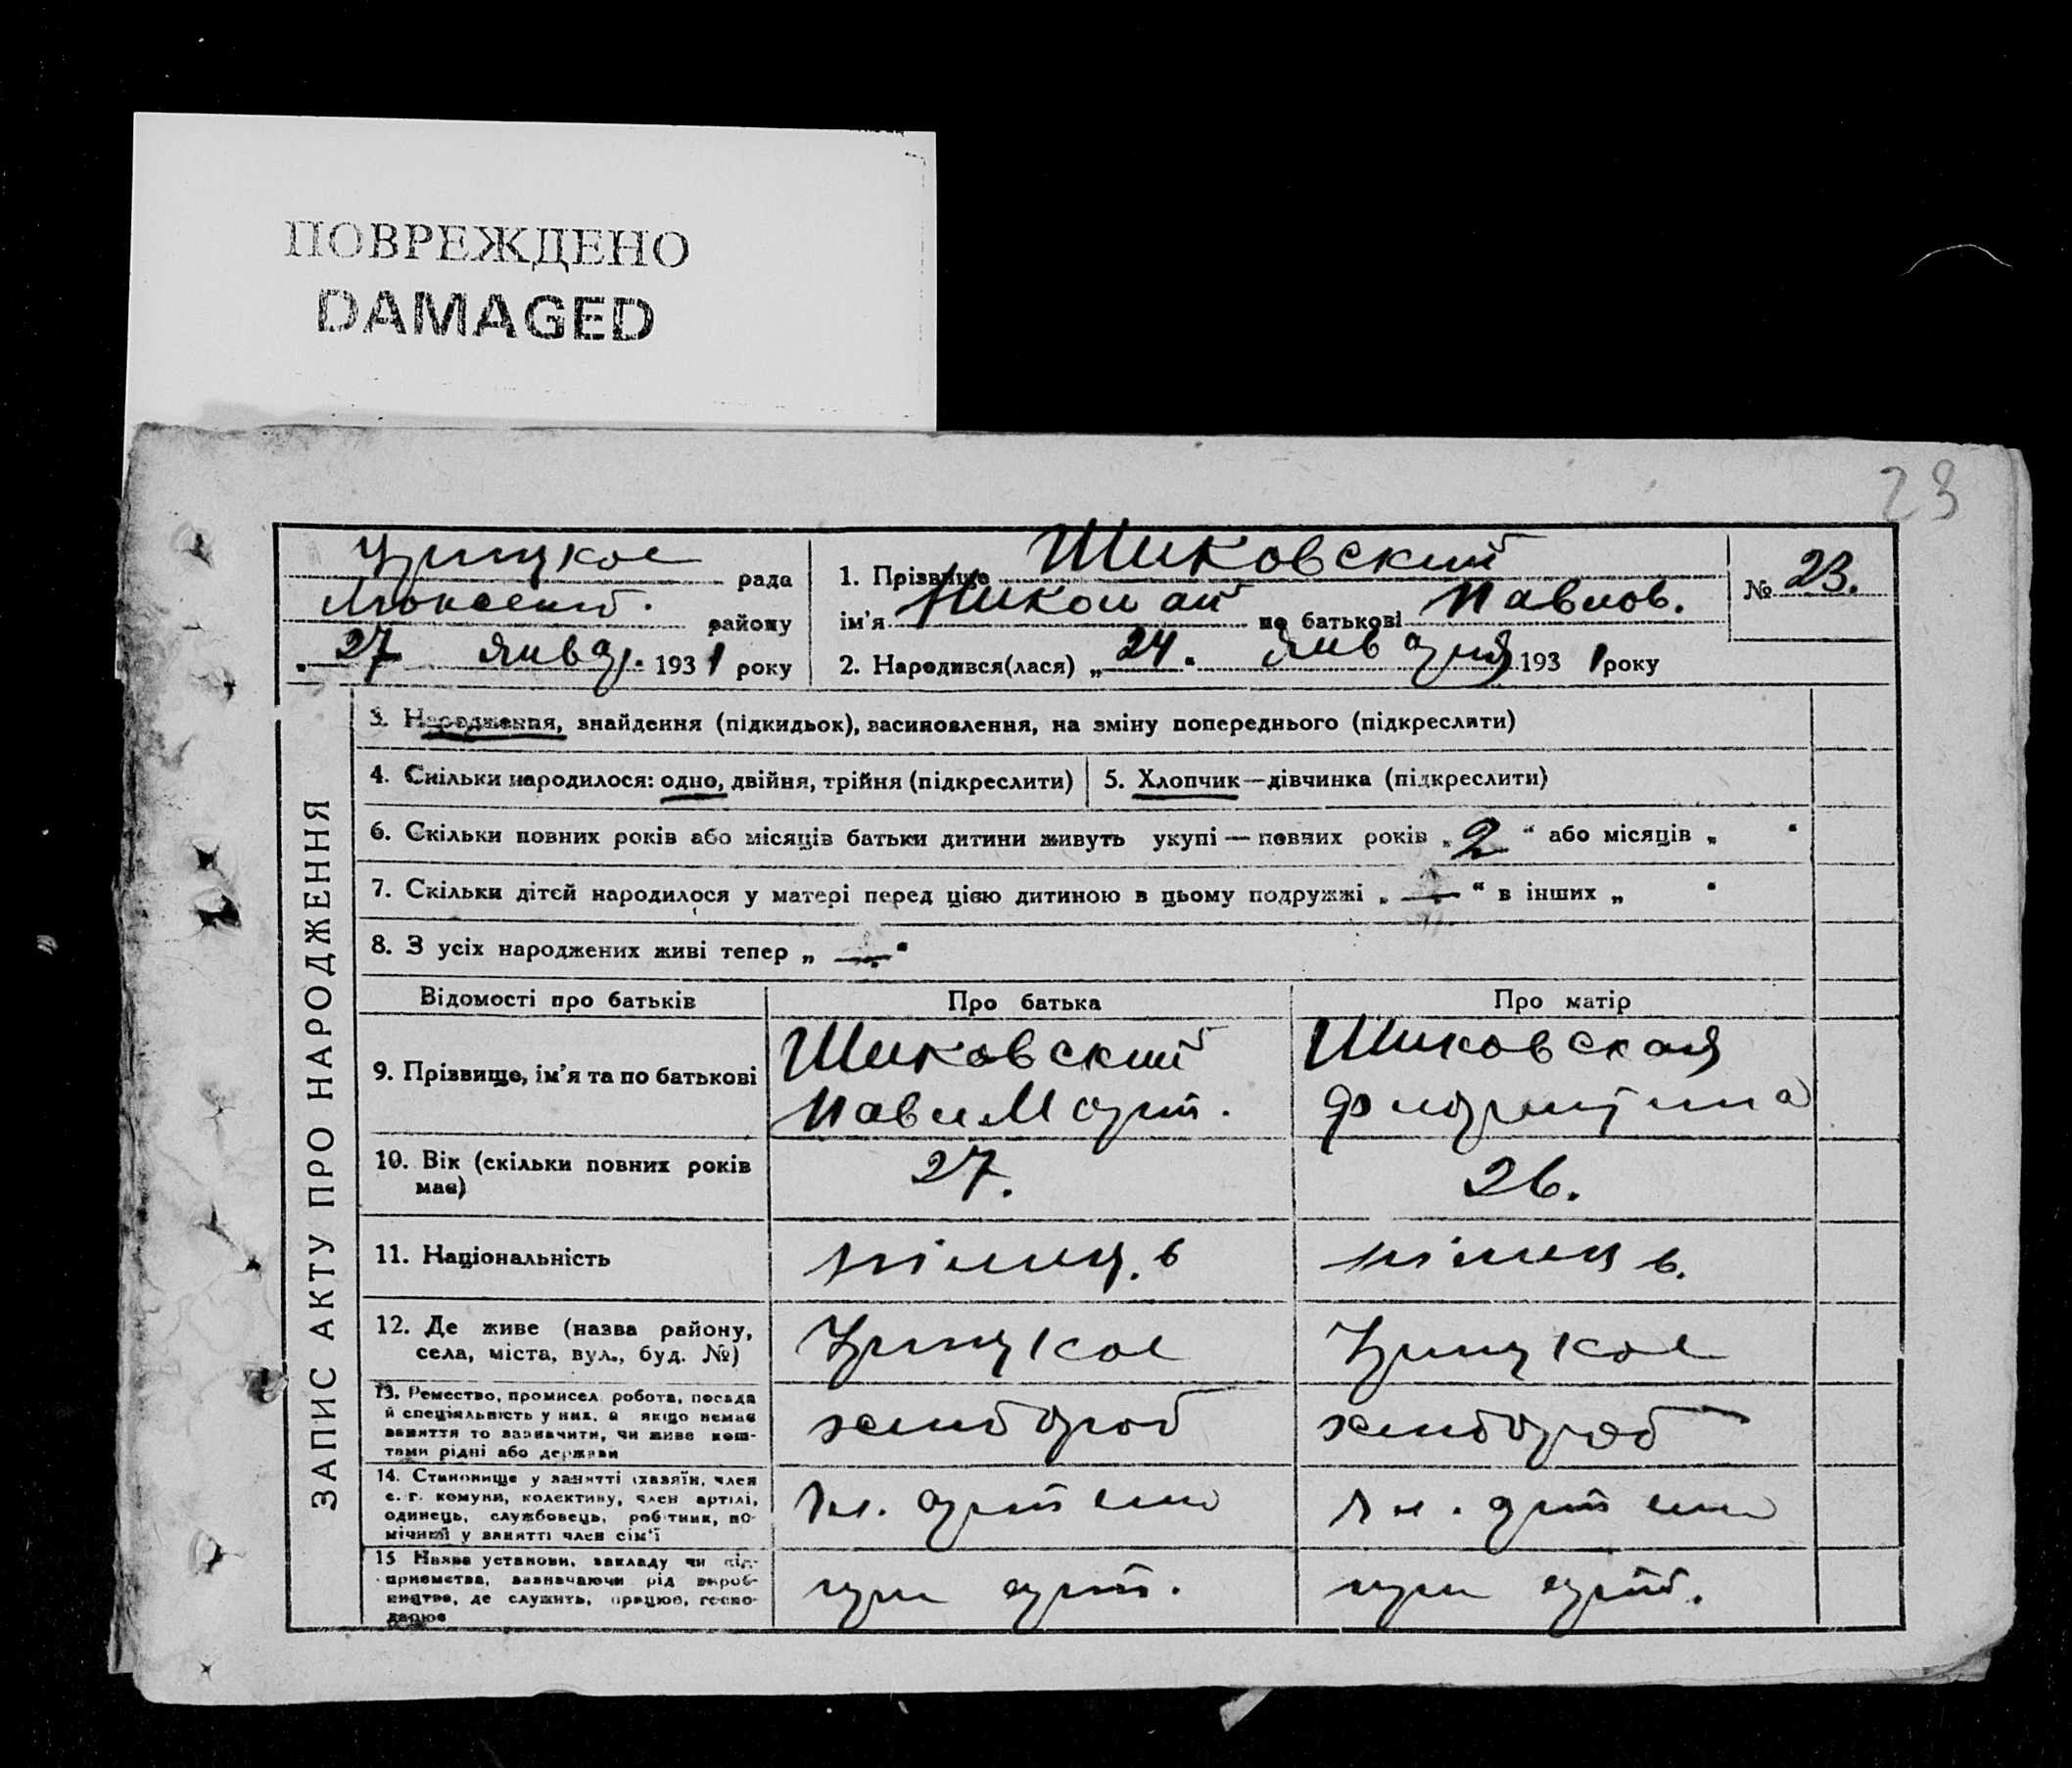 ПОВРЕЖДЕНО
DAMAGED
23
Урицкое рада
району
27 январ. 1931 року
1. Прізвище Шиковский
ім'я Николай по батькові Павлов.
2. Народився(лася) „24" января 1931 року
№ 23.
ЗАПИС АКТУ ПРО НАРОДЖЕННЯ
3. Народження, знайдення (підкидьок), засиновлення, на зміну попереднього (підкреслити)
4. Скільки народилося: одно, двійня, трійня (підкреслити)
5. Хлопчик—дівчинка (підкреслити)
6. Скільки повних років або місяців батьки дитини живуть укупі — повних років „2" або місяців „ "
7. Скільки дітей народилося у матері перед цією дитиною в цьому подружжі „—" в інших „ "
8. З усіх народжених живі тепер „—"
Відомості про батьків
Про батька
Про матір
9. Прізвище, ім'я та по батькові
Шиковский
Павел Март.
Шиковская
10. Вік (скільки повних років
має)
27.
26.
11. Національність
німець
німець.
12. Де живе (назва району,
села, міста, вул., буд. №)
Урицкое
Урицкое
13. Ремество, промисел, робота, посада
й спеціяльність у них, а якщо немає
заняття то зазначити, чи живе кош-
тами рідні або держави
хлібороб
хлібороб
14. Становище у занятті (хазяїн, член
с. г. комуни, колективу, член артілі,
одинець, службовець, робітник, по-
мічний у занятті член сім'ї
чл. артели
чл. артели
15 Назва установи, закладу чи під-
приємства, зазначаючи рід вироб-
ництва, де служить, працює, госпо-
дарює
при арт.
при арт.